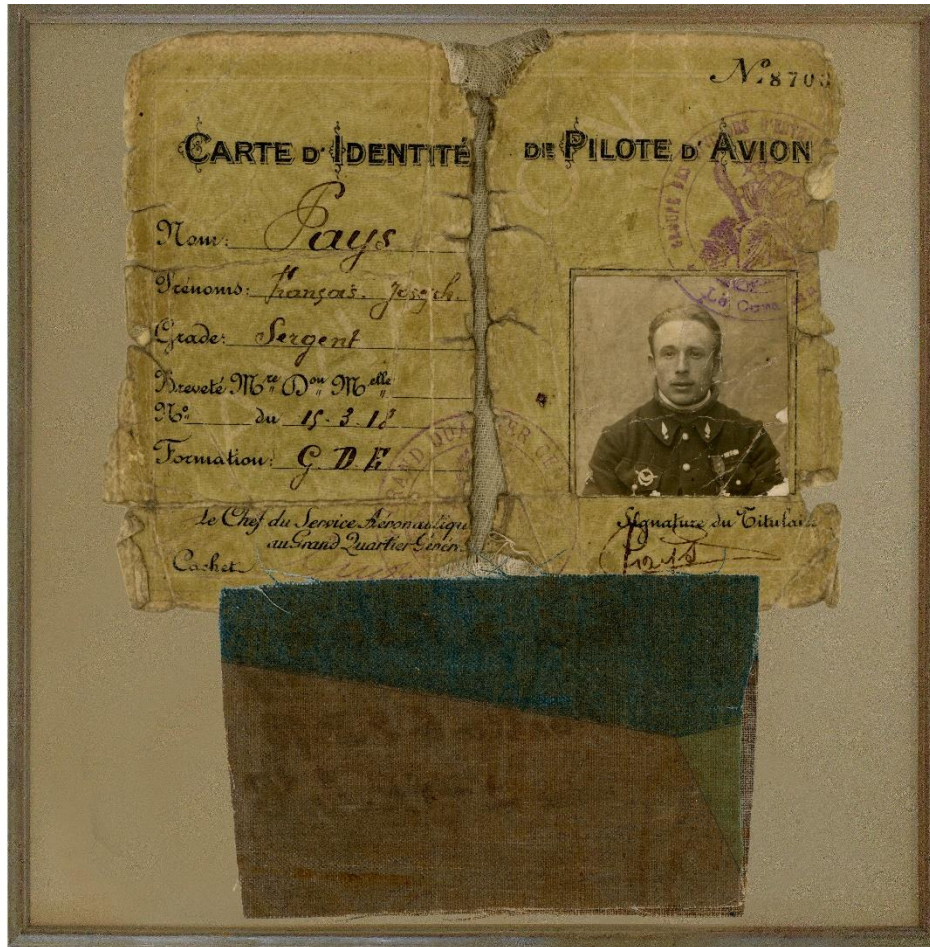 Nº 8703
CARTE D'IDENTITÉ DE PILOTE D'AVION
Nom: Pays
Prénoms: François. Joseph.
Grade: Sergent
Breveté Mre Don Melle
Nº du 15.3.18
Formation: G D E
Le Chef du Service Aéronautique
au Grand Quartier Génér
Cachet
Signature du Titulai
Pays
GRAND QUARTIER